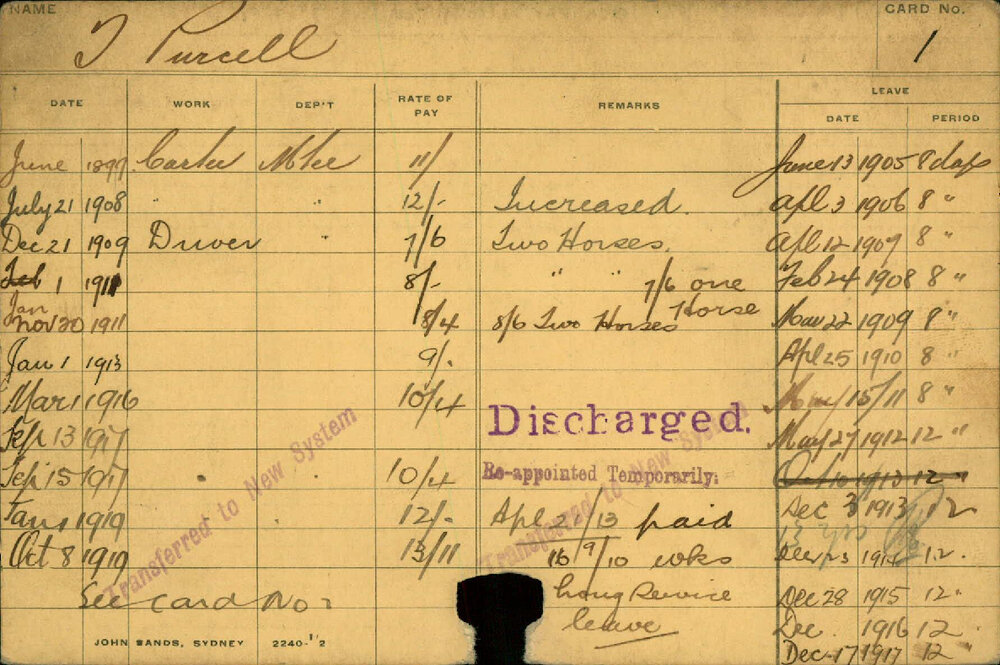 NAME CARD No.
T Purcell 1
DATE WORK DEP'T RATE OF PAY REMARKS LEAVE
DATE PERIOD
June 1899 Carter 11/ June 13 1905 8 days
July 21 1908 " 12/- Increased. Apl 3 1906 8 "
Dec 21 1909 Driver " 7/6 Two Horses. Apl 12 1907 8 "
Feb 1 1911 8/- " " 7/6 one Feb 24 1908 8 "
Jan Horse
Nov 20 1911 8/4 8/6 Two Horses Mar 22 1909 8 "
Jan 1 1913 9/- Apl 25 1910 8 "
Mar 1 1916 10/4 May 15/11 8 "
Discharged.
Sep 13 1917 May 27 1912 12 "
Sep 15 1917 " " 10/4 Re-appointed Temporarily. Oct 10 1913 12 "
Jan 1 1919 12/- Apl 13 paid Dec 3 1913 12
13
Oct 8 1919 13/11 16 9/10 wks Dec 23 1914 12.
See card No 2 Long Service Dec 28 1915 12 "
leave Dec 1916 12
Dec 17 1917 12 "
Transferred to New System
Transferred to New System
JOHN SANDS, SYDNEY 2240-1/2